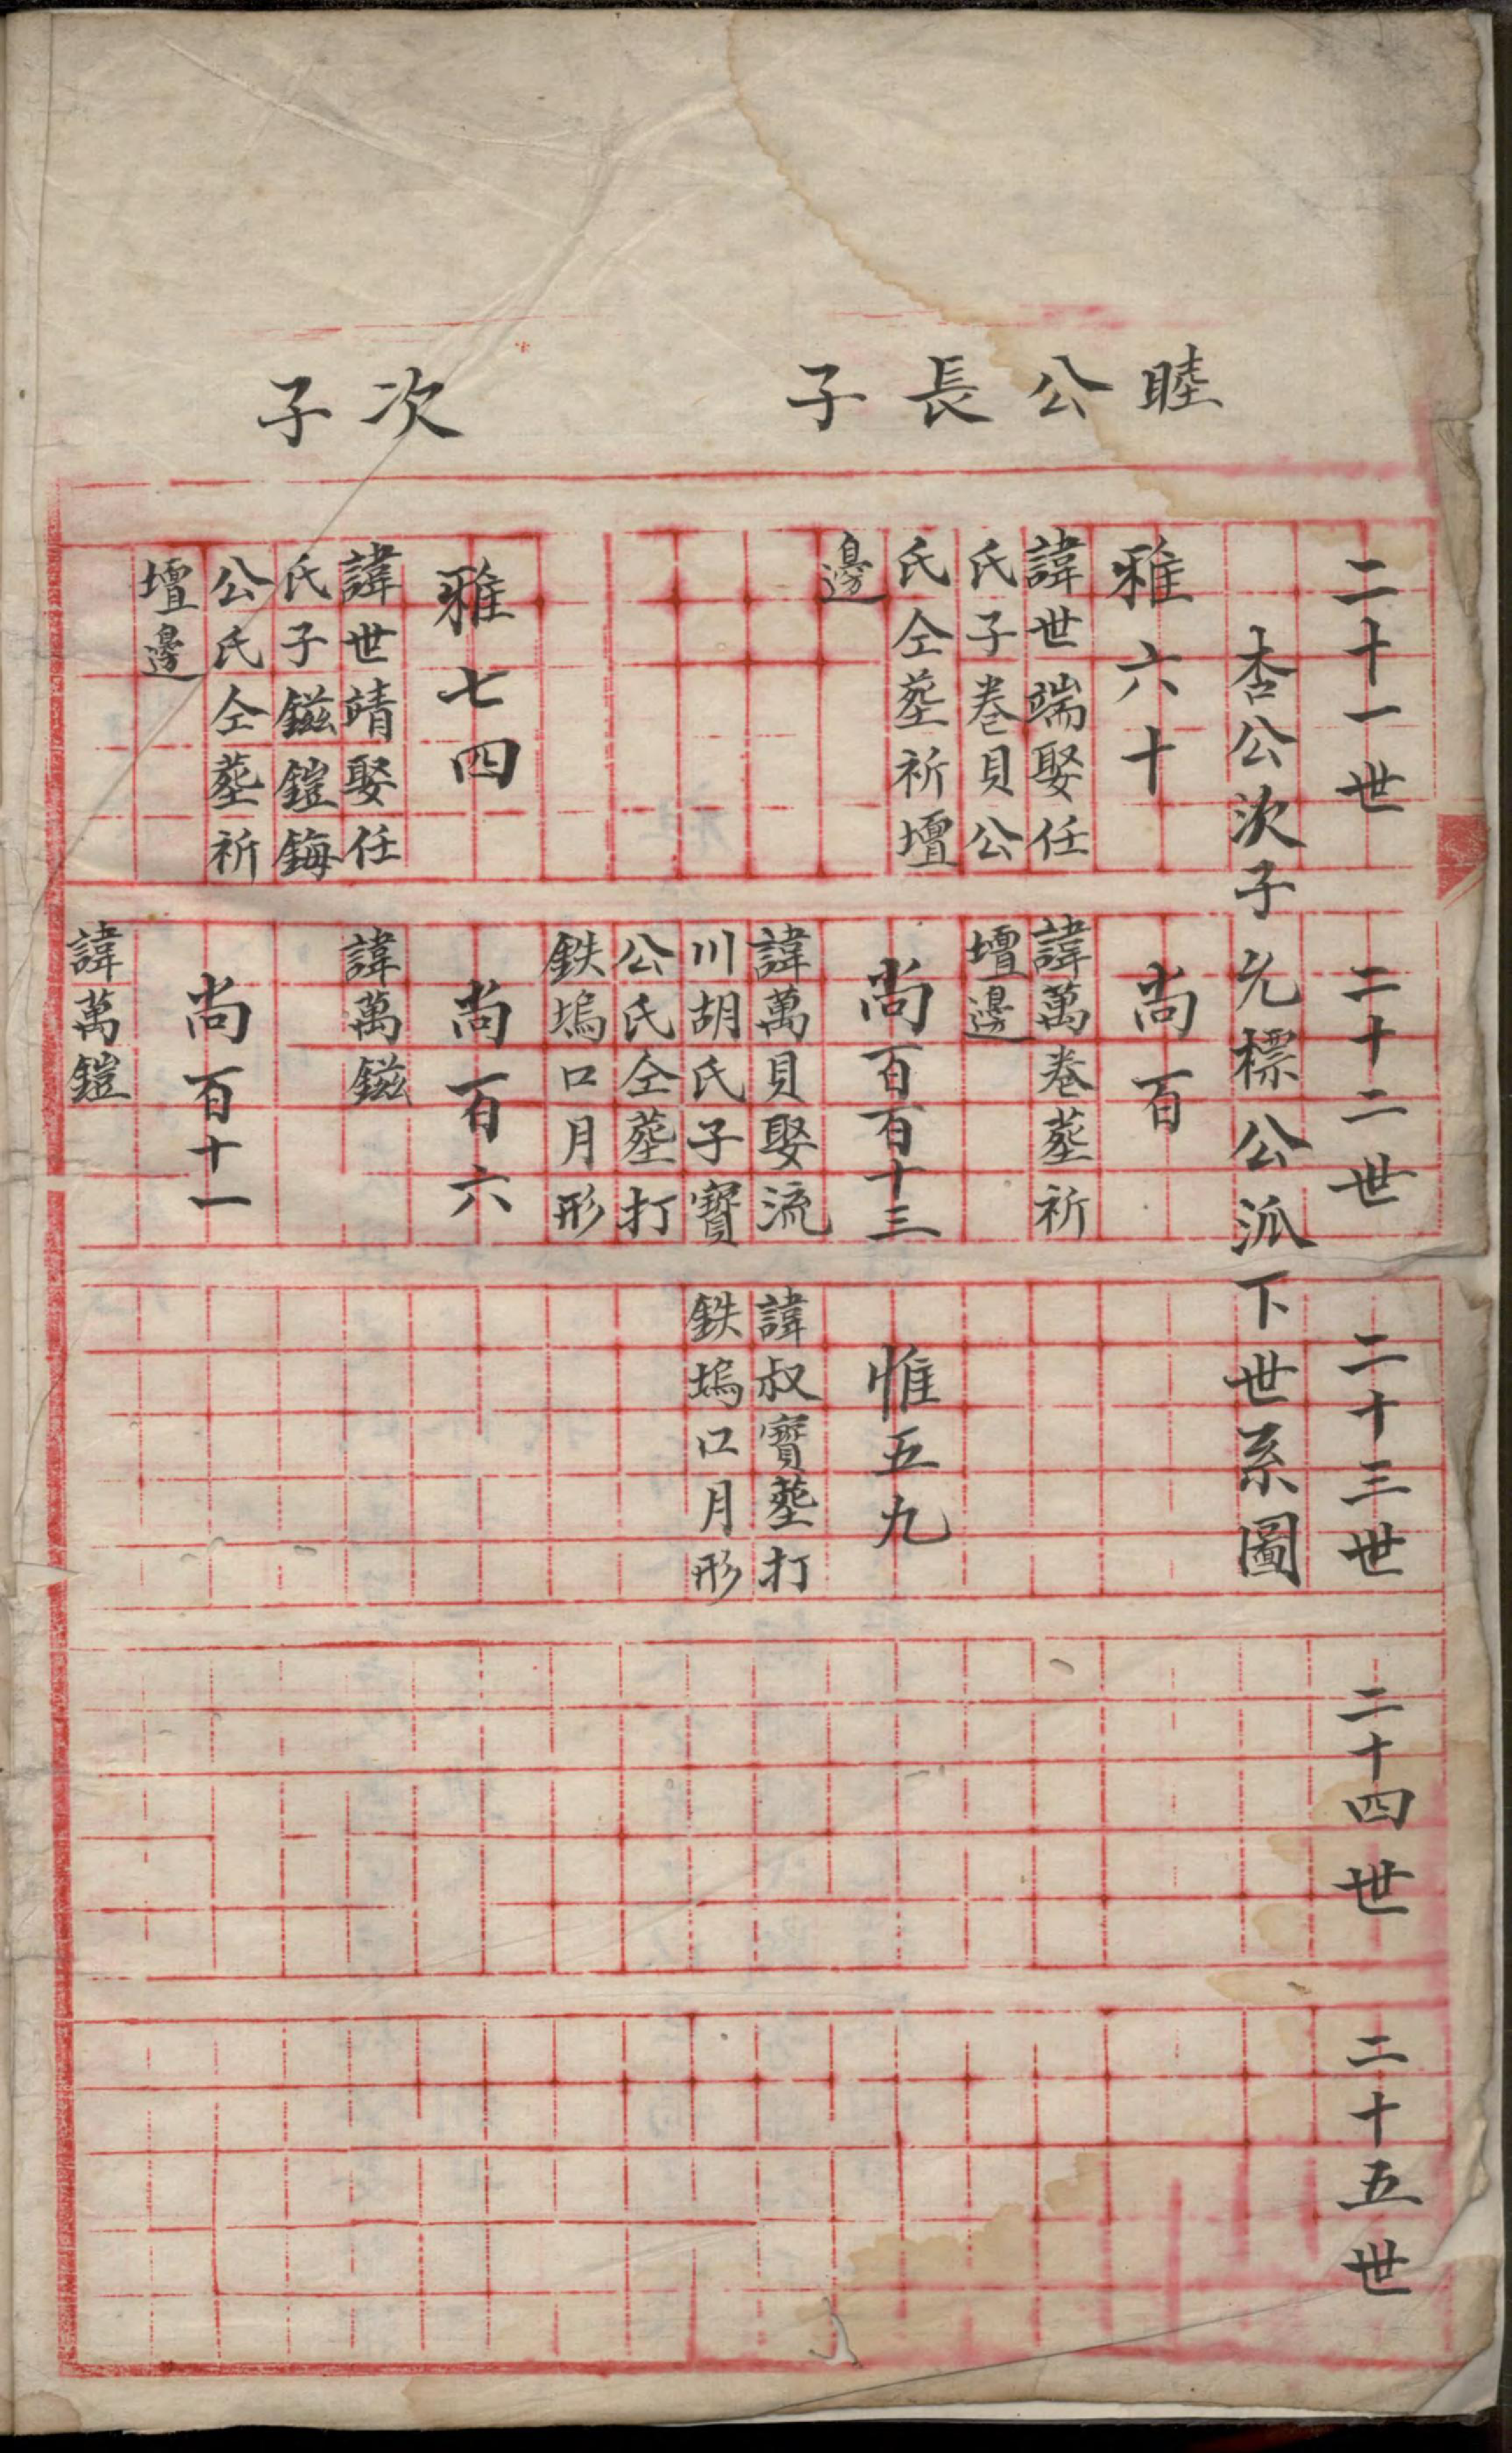 睦公長子
次子
二十一世
二十二世
二十三世
二十四世
二十五世
杏公次子元標公派下世系圖
雅六十
諱世端娶任
氏子卷貝公
氏仝塟祈壇
邊
雅七四
諱世靖娶任
氏子鎡鎧鋂
公氏仝塟祈
壇邊
尚百
諱萬卷塟祈
壇邊
尚百百十三
諱萬貝娶流
川胡氏子寳
公氏仝塟打
鉄塢口月形
尚百六
諱萬鎡
尚百十一
諱萬鎧
惟五九
諱叔寳塟打
鉄塢口月形